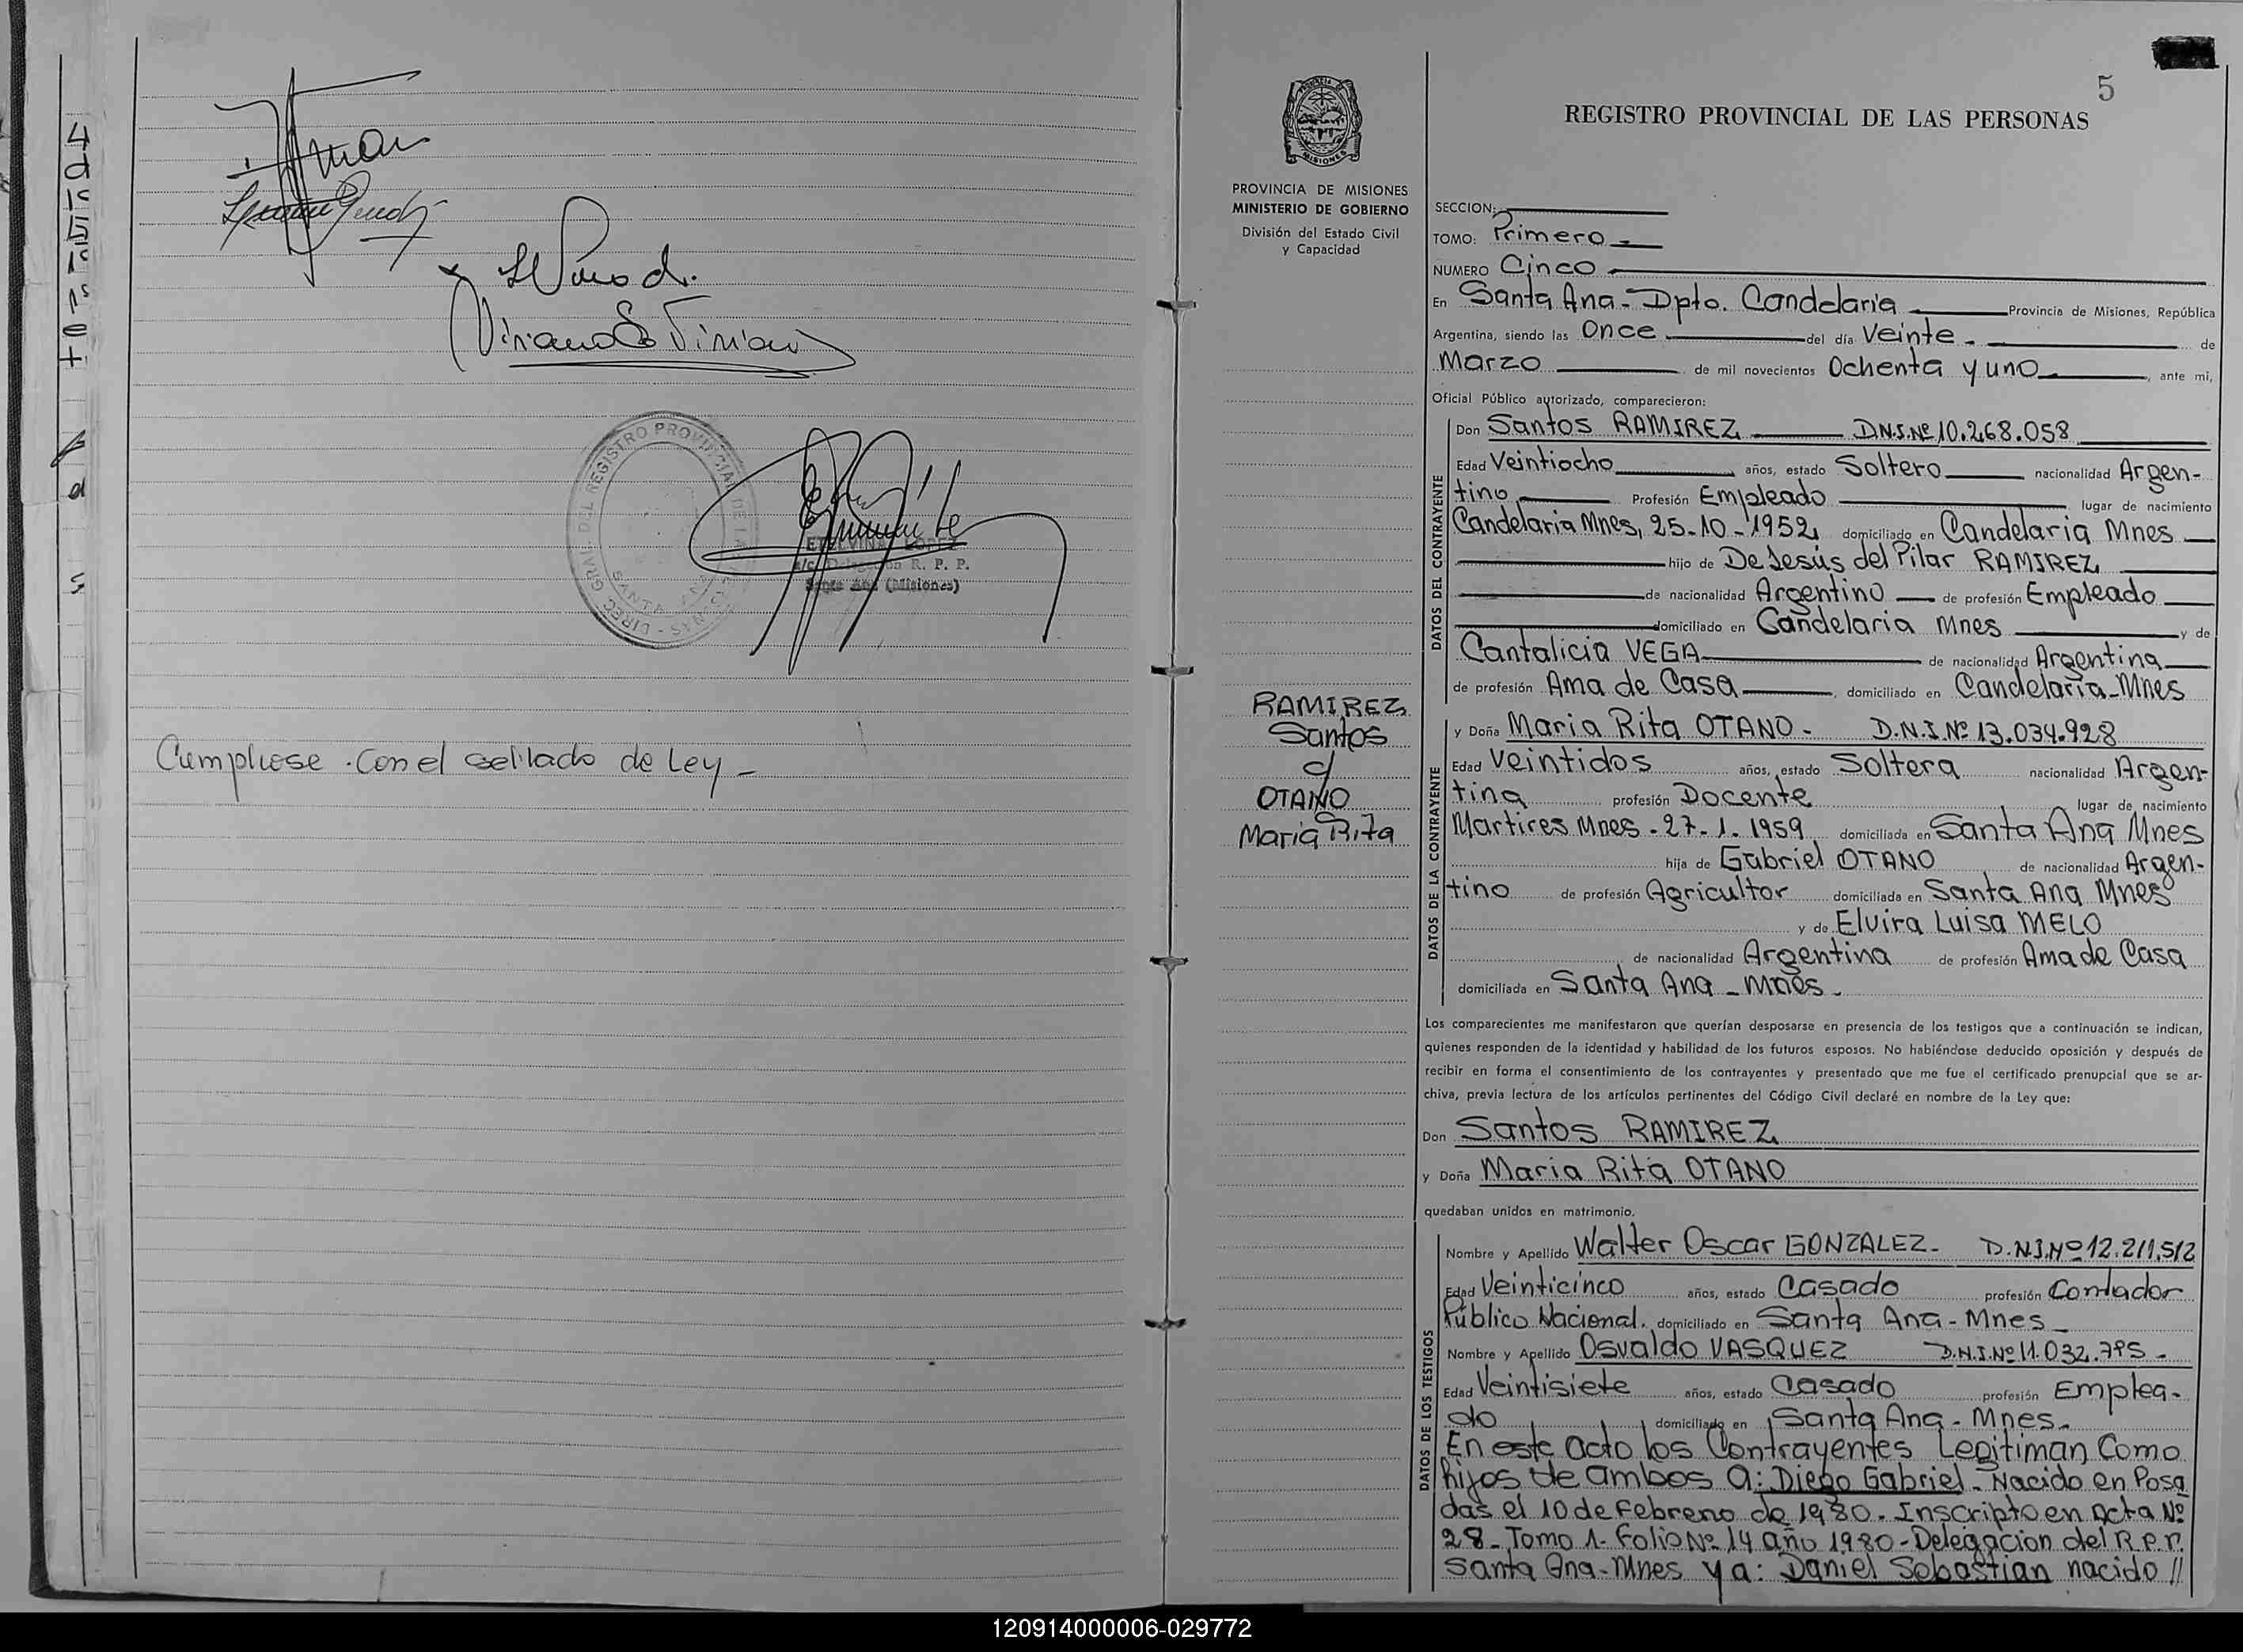 Cumpliose con el sellado de Ley -
DIREC. GRAL. DEL REGISTRO PROVINCIAL DE LAS PERSONAS
SANTA ANA
ETELVINA LOPEZ
a/c Delegación R. P. P.
Santa Ana (Misiones)
5
REGISTRO PROVINCIAL DE LAS PERSONAS
MISIONES
PROVINCIA DE MISIONES
MINISTERIO DE GOBIERNO
División del Estado Civil
y Capacidad
RAMIREZ
Santos
c/
OTANO
Maria Rita
SECCION:
TOMO: Primero -
NUMERO Cinco
En Santa Ana - Dpto. Candelaria Provincia de Misiones, República
Argentina, siendo las Once del día Veinte - de
Marzo de mil novecientos Ochenta y uno, ante mi,
Oficial Público autorizado, comparecieron:
DATOS DEL CONTRAYENTE
Don Santos RAMIREZ D.N.I. Nº 10.268.058
Edad Veintiocho años, estado Soltero nacionalidad Argen-
tino Profesión Empleado lugar de nacimiento
Candelaria Mnes, 25-10-1952, domiciliado en Candelaria Mnes
hijo de De Jesús del Pilar RAMIREZ
de nacionalidad Argentino de profesión Empleado
domiciliado en Candelaria Mnes y de
Cantalicia VEGA de nacionalidad Argentina
de profesión Ama de Casa, domiciliado en Candelaria - Mnes
DATOS DE LA CONTRAYENTE
y Doña Maria Rita OTANO - D.N.I. Nº 13.034.928
Edad Veintidos años, estado Soltera nacionalidad Argen-
tina profesión Docente lugar de nacimiento
Martires Mnes - 27.1.1959 domiciliada en Santa Ana Mnes
hija de Gabriel OTANO de nacionalidad Argen-
tino de profesión Agricultor domiciliada en Santa Ana Mnes
y de Elvira Luisa MELO
de nacionalidad Argentina de profesión Ama de Casa
domiciliada en Santa Ana - Mnes -
Los comparecientes me manifestaron que querían desposarse en presencia de los testigos que a continuación se indican,
quienes responden de la identidad y habilidad de los futuros esposos. No habiéndose deducido oposición y después de
recibir en forma el consentimiento de los contrayentes y presentado que me fue el certificado prenupcial que se ar-
chiva, previa lectura de los artículos pertinentes del Código Civil declaré en nombre de la Ley que:
Don Santos RAMIREZ
y Doña Maria Rita OTANO
quedaban unidos en matrimonio.
DATOS DE LOS TESTIGOS
Nombre y Apellido Walter Oscar GONZALEZ - D.N.I. Nº 12.211.512
Edad Veinticinco años, estado Casado profesión Contador
Público Nacional. domiciliado en Santa Ana - Mnes -
Nombre y Apellido Osvaldo VASQUEZ D.N.I. Nº 11.032.785 -
Edad Veintisiete años, estado Casado profesión Emplea-
do domiciliado en Santa Ana - Mnes -
En este acto los Contrayentes Legitiman Como
hijos de ambos a: Diego Gabriel - Nacido en Posa
das el 10 de Febrero de 1980. Inscripto en Acta Nº
28 - Tomo 1 - Folio Nº 14 año 1980 - Delegacion del R.P.P.
Santa Ana - Mnes y a: Daniel Sebastian nacido //
120914000006-029772